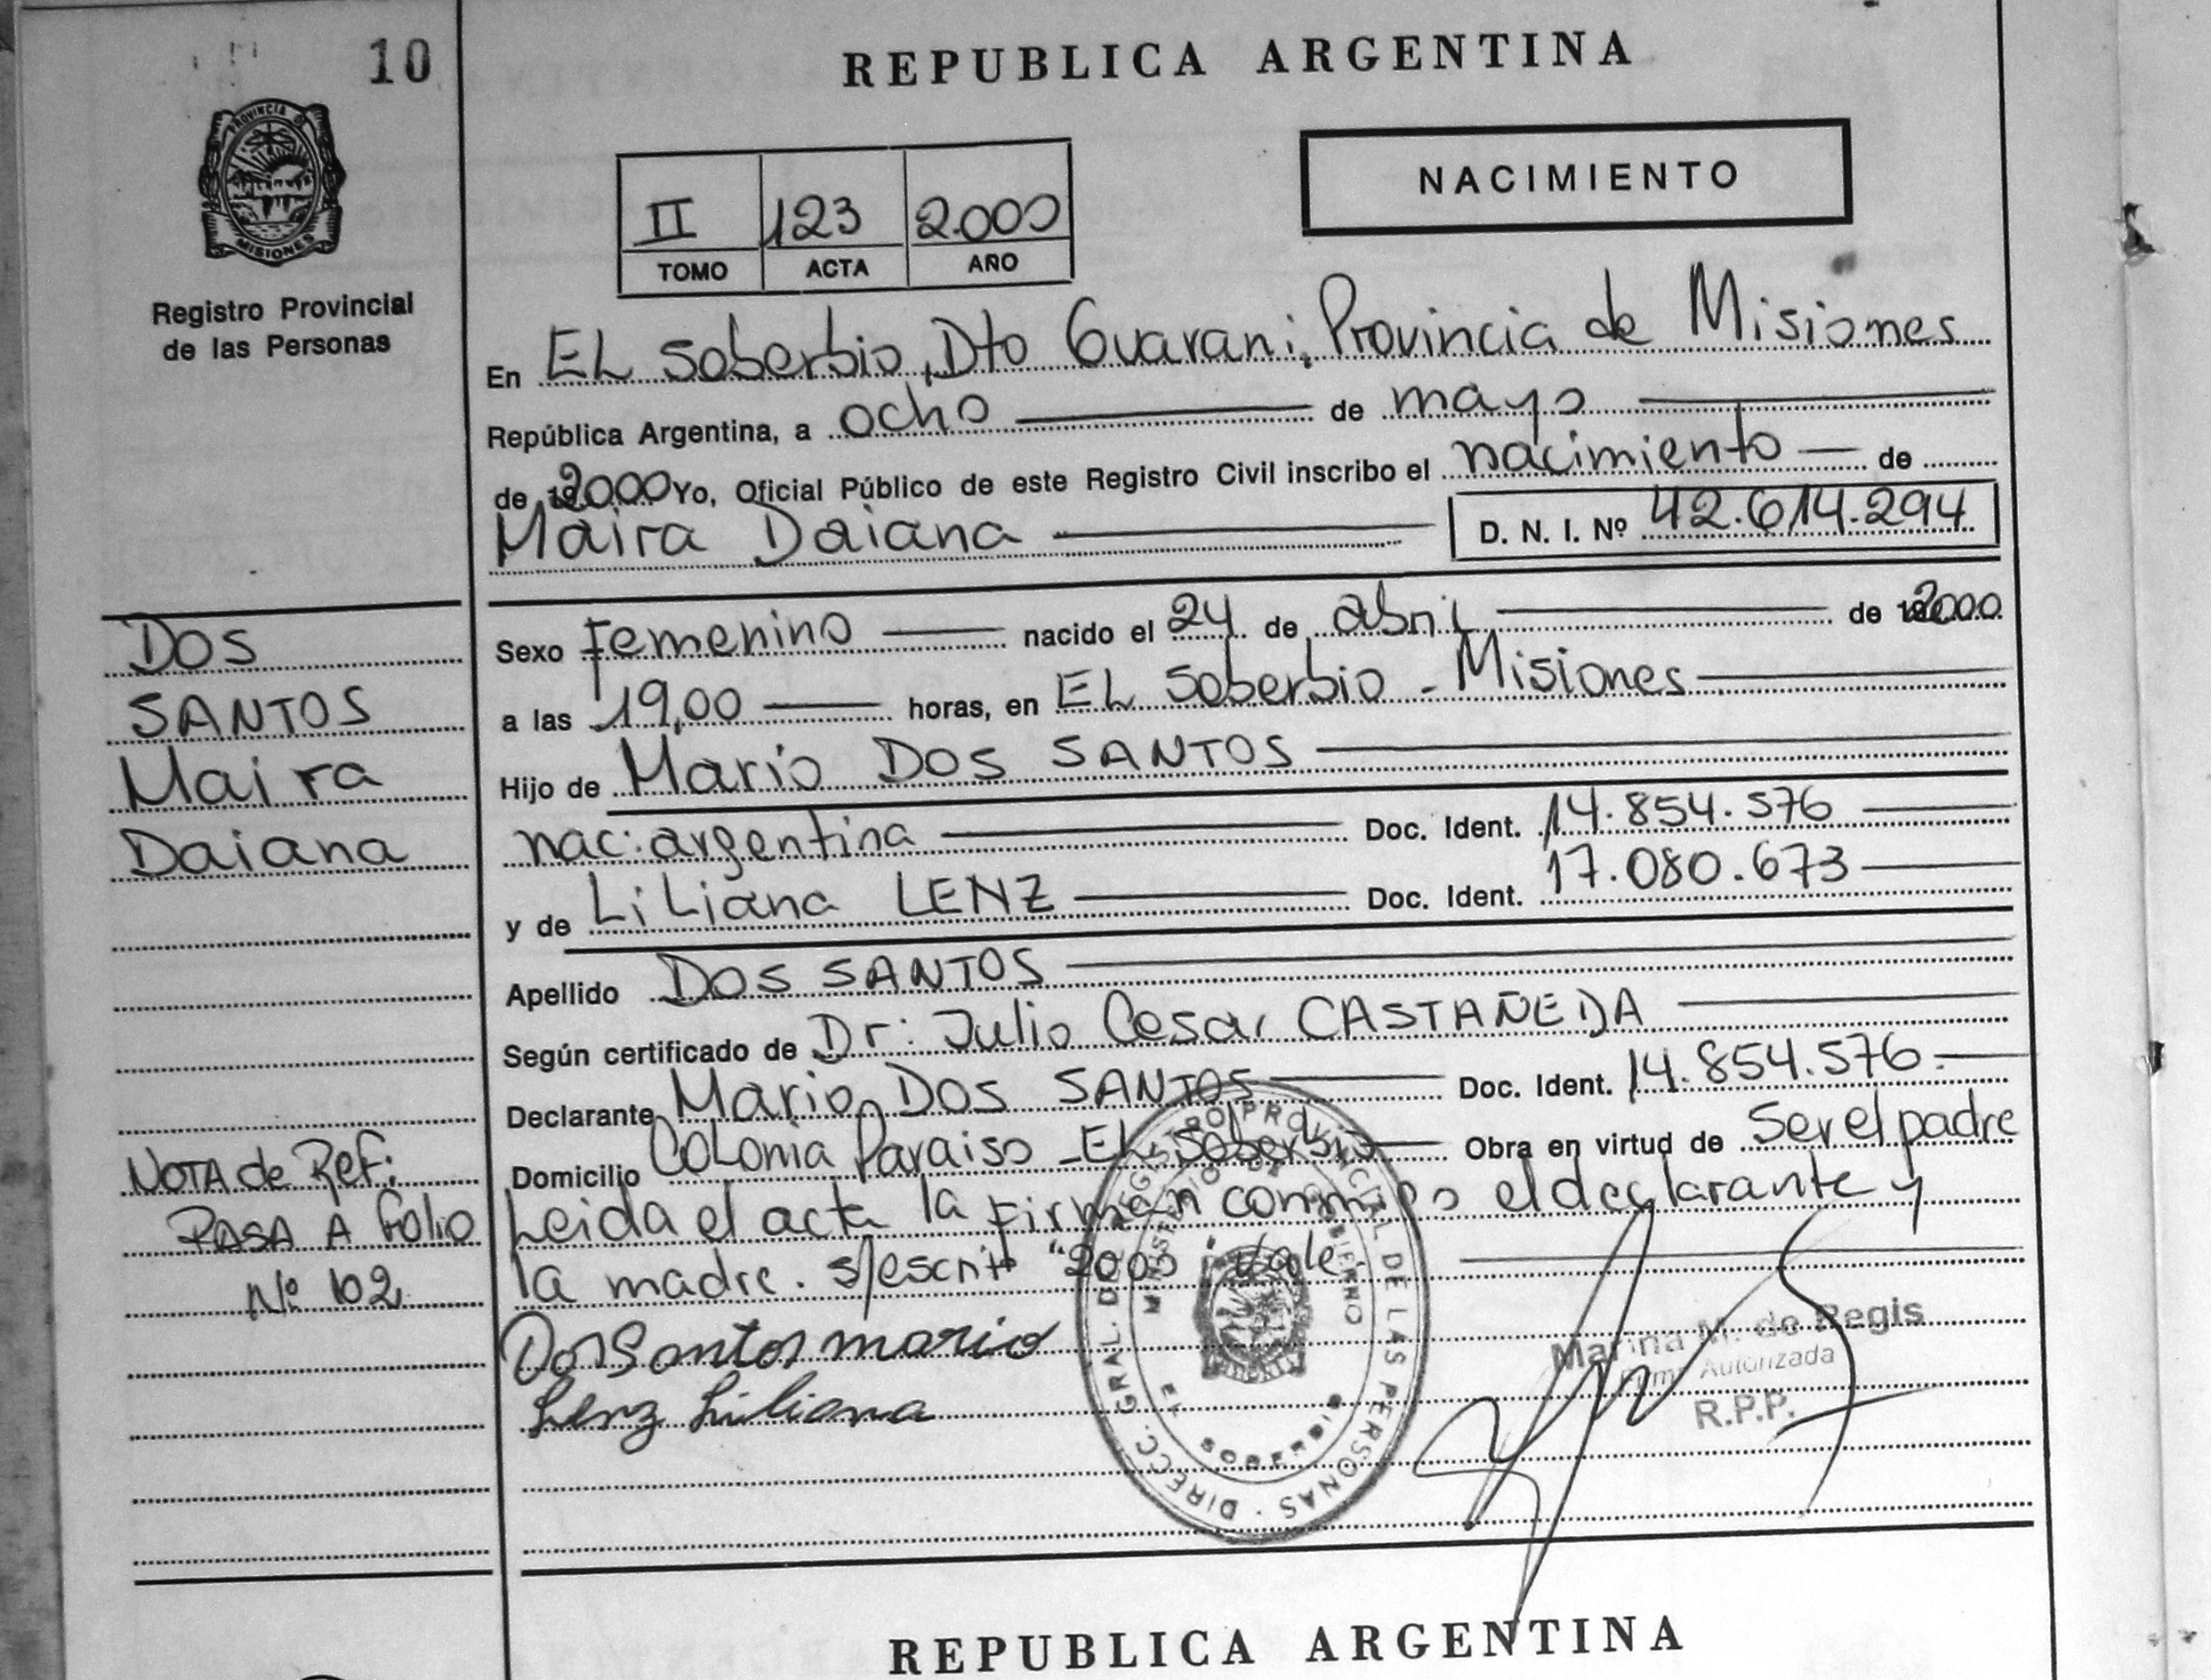 10
PROVINCIA DE
MISIONES
Registro Provincial
de las Personas
REPUBLICA ARGENTINA
II 123 2.000
TOMO ACTA AÑO
NACIMIENTO
En EL Soberbio, Dto Guarani, Provincia de Misiones
República Argentina, a ocho de mayo
de 2000 Yo, Oficial Público de este Registro Civil inscribo el nacimiento de
Maira Daiana D. N. I. Nº 42.614.294
DOS
SANTOS
Maira
Daiana
Sexo Femenino nacido el 24 de abril de 2000
a las 19,00 horas, en EL Soberbio - Misiones
Hijo de Mario DOS SANTOS
nac: argentina Doc. Ident. 14.854.576
y de Liliana LENZ Doc. Ident. 17.080.673
Apellido DOS SANTOS
Según certificado de Dr: Julio Cesar CASTAÑEDA
Declarante Mario DOS SANTOS Doc. Ident. 14.854.576.
Domicilio Colonia Paraiso - EL Soberbio Obra en virtud de ser el padre
Leida el acta la firman conmigo el declarante y
la madre. s/escrit "2000" Vale.
NOTA de Ref:
PASA A folio
Nº 102
Dos Santos mario
Lenz Liliana
DIRECC. GRAL. DEL REGISTRO PROVINCIAL DE LAS PERSONAS
MINISTERIO DE GOBIERNO
EL SOBERBIO
Marina M. de Regis
Firma Autorizada
R.P.P.
REPUBLICA ARGENTINA